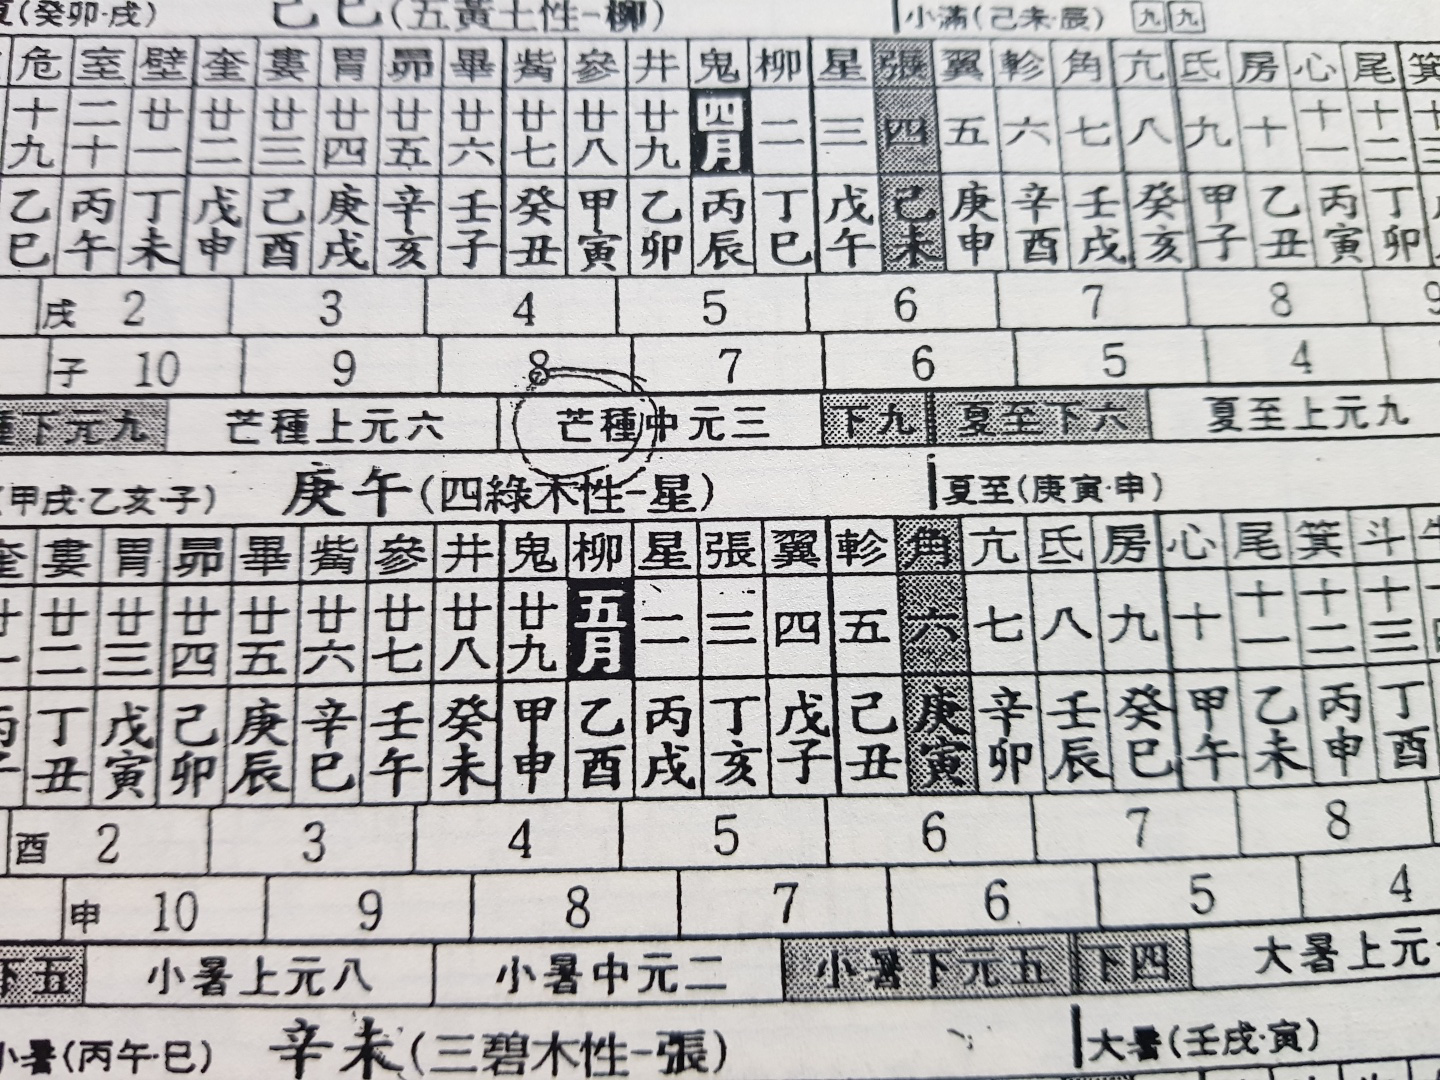 (癸卯·戌) 己巳(五黃土性-柳) 小滿(己未·辰) 九 九
危 室 壁 奎 婁 胃 昴 畢 觜 參 井 鬼 柳 星 張 翼 軫 角 亢 氐 房 心 尾 箕
十九 二十 廿一 廿二 廿三 廿四 廿五 廿六 廿七 廿八 廿九 四月 二 三 四 五 六 七 八 九 十 十一 十二 十三
乙巳 丙午 丁未 戊申 己酉 庚戌 辛亥 壬子 癸丑 甲寅 乙卯 丙辰 丁巳 戊午 己未 庚申 辛酉 壬戌 癸亥 甲子 乙丑 丙寅 丁卯
戌 2 3 4 5 6 7 8 9
子 10 9 8 7 6 5 4
種下元九 芒種上元六 芒種中元三 下九 夏至下六 夏至上元九
(甲戌·乙亥·子) 庚午(四綠木性-星) 夏至(庚寅·申)
奎 婁 胃 昴 畢 觜 參 井 鬼 柳 星 張 翼 軫 角 亢 氐 房 心 尾 箕 斗
廿一 廿二 廿三 廿四 廿五 廿六 廿七 廿八 廿九 五月 二 三 四 五 六 七 八 九 十 十一 十二 十三
丙子 丁丑 戊寅 己卯 庚辰 辛巳 壬午 癸未 甲申 乙酉 丙戌 丁亥 戊子 己丑 庚寅 辛卯 壬辰 癸巳 甲午 乙未 丙申 丁酉
酉 2 3 4 5 6 7 8
申 10 9 8 7 6 5 4
下五 小暑上元八 小暑中元二 小暑下元五 下四 大暑上元
小暑(丙午·巳) 辛未(三碧木性-張) 大暑(壬戌·寅)